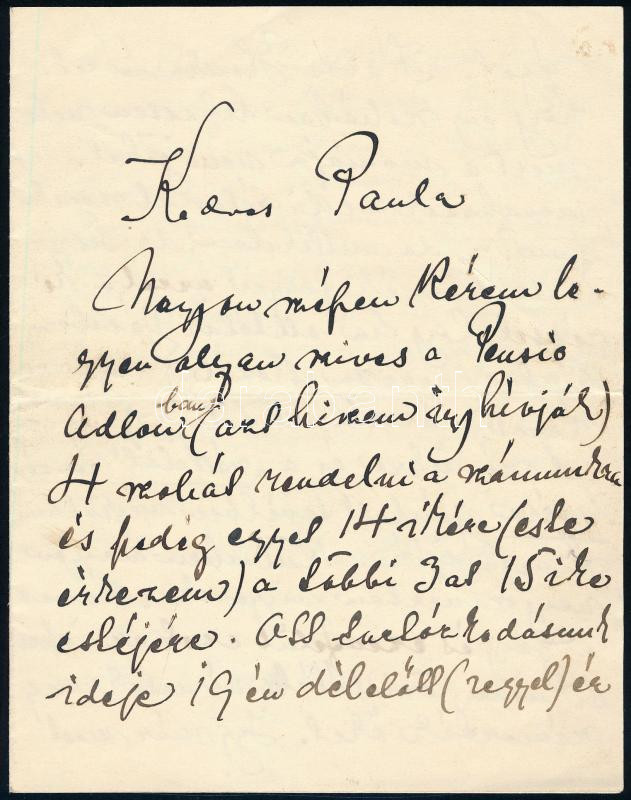 Kedves Paula
Nagyon szépen kérem le-
gyen olyan szives a Pensio
Adlon (azt hiszem igy hívják)
4 szobát rendelni a számunkra
és pedig egyet 14ikére (este
érkezem) a többi 3at 15ike
estéjére. Ott tartózkodásunk
ideje 19én délelőtt (reggel) ér